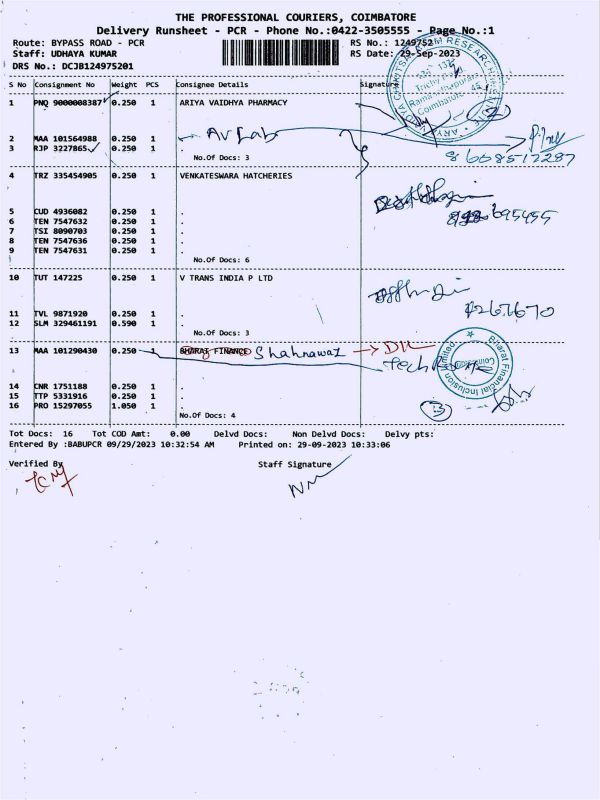 THE PROFESSIONAL COURIERS, COIMBATORE
Delivery Runsheet - PCR - Phone No.:0422-3505555 - Page No.:1
Route: BYPASS ROAD - PCR RS No.: 1249752
Staff: UDHAYA KUMAR RS Date: 29-Sep-2023
DRS No.: DCJB124975201
S No Consignment No Weight PCS Consignee Details Signature
1 PNQ 9000008387 0.250 1 ARIYA VAIDHYA PHARMACY
2 MAA 101564988 0.250 1 . AV Lab
3 RJP 3227865 0.250 1 .
8668517287
No.Of Docs: 3
4 TRZ 335454905 0.250 1 VENKATESWARA HATCHERIES
5 CUD 4936082 0.250 1 .
6 TEN 7547632 0.250 1 .
7 TSI 8090703 0.250 1 .
8 TEN 7547636 0.250 1 .
9 TEN 7547631 0.250 1 .
No.Of Docs: 6
10 TUT 147225 0.250 1 V TRANS INDIA P LTD
11 TVL 9871920 0.250 1 .
12 SLM 329461191 0.590 1 .
No.Of Docs: 3
13 MAA 101290430 0.250 1 BHARAT FINANCE Shahnawaz
Bharat Financial Inclusion Limited
14 CNR 1751188 0.250 1 .
15 TTP 5331916 0.250 1 .
16 PRO 15297055 1.050 1 .
3
No.Of Docs: 4
Tot Docs: 16 Tot COD Amt: 0.00 Delvd Docs: Non Delvd Docs: Delvy pts:
Entered By :BABUPCR 09/29/2023 10:32:54 AM Printed on: 29-09-2023 10:33:06
Verified By Staff Signature